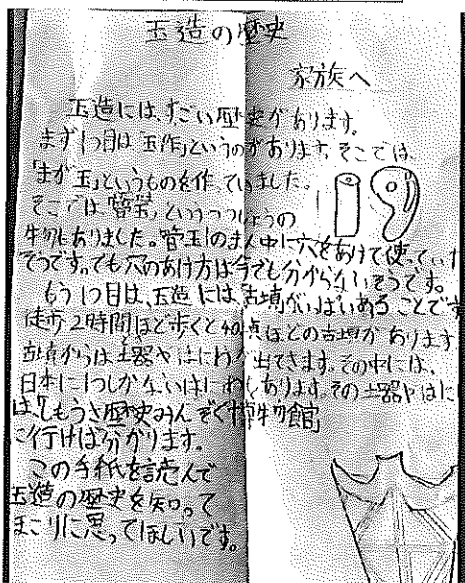 玉造の歴史
家族へ
玉造には、すごい歴史があります。
まず1つ目は「玉作」というのがあります。そこでは、
「まが玉」というものを作っていました。
そこでは「管玉」というつつじょうの
物もありました。管玉のまん中に穴をあけて使っていた
そうです。でも穴のあけ方は今でも分からないそうです。
もう1つ目は、玉造には、古墳がいっぱいあることです
徒歩2時間ほど歩くと40点ほどの古墳があります
古墳からは土器やはにわが出てきます。その中には、
日本に1つしかないはにわもあります。その土器やはに
は、「しもうさ歴史みんぞく博物館」
に行けば分かります。
この手紙を読んで
玉造の歴史を知って
ほこりに思ってほしいです。